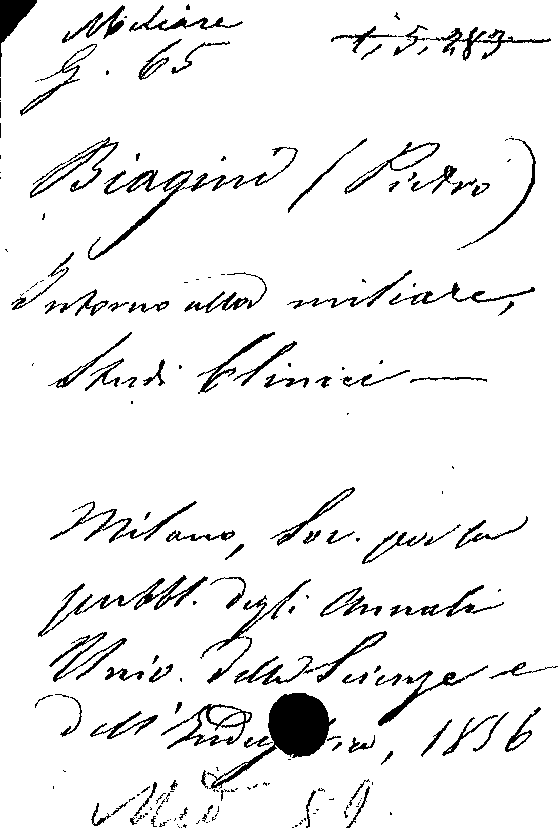 Miliare
G. 65
1, 5, 283
Biagini (Pietro)
Intorno alla miliare,
Studi Clinici —
Milano, Soc. per la
pubbl. degli Annali
Univ. delle Scienze e
dell'Industria, 1856
Med 89.